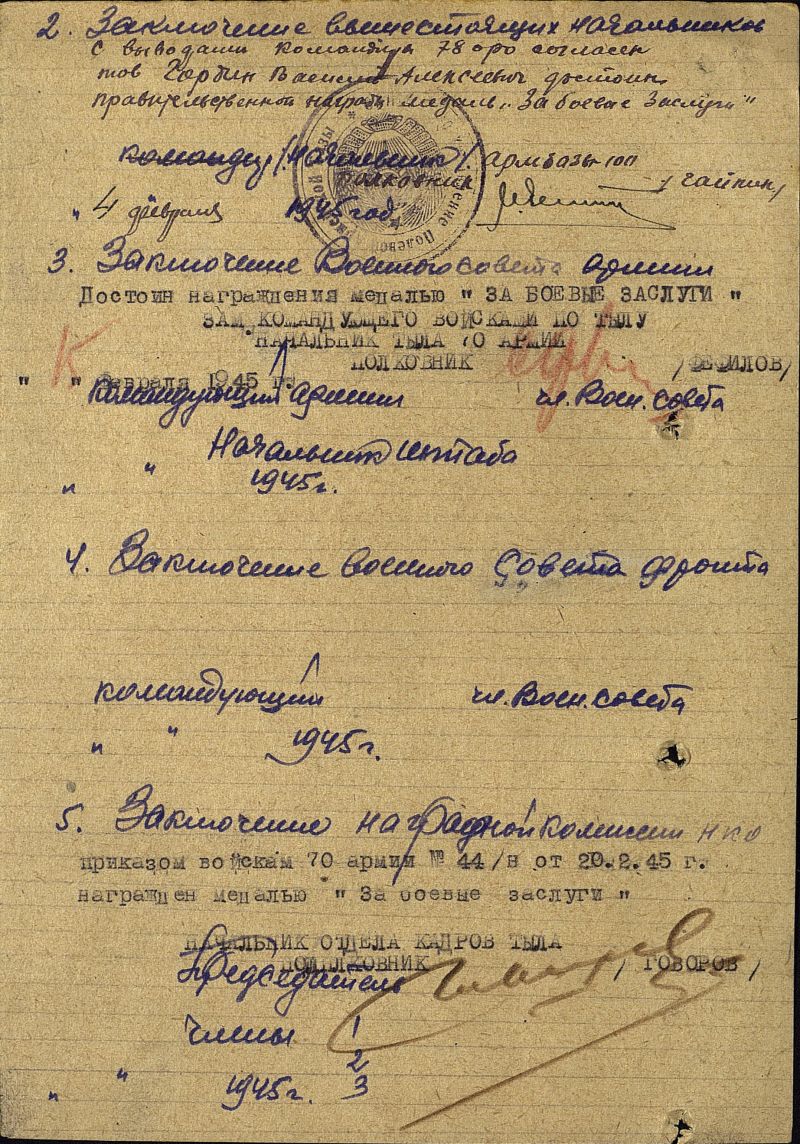 2. Заключение вышестоящих начальников
С выводами командира 78 оро согласен
тов Василий Алексеевич достоин
правительственной награды медаль „За боевые Заслуги"
командир /Начальник/. армбазы-1011
полковник / Чайкин/
„ 4 февраля 1945 год.
3. Заключение Военного совета армии
Достоин награждения медалью " ЗА БОЕВЫЕ ЗАСЛУГИ "
ЗАМ КОМАНДУЮЩЕГО ВОЙСКАМИ ПО ТЫЛУ
НАЧАЛЬНИК ТЫЛА 70 АРМИИ
ПОЛКОВНИК /ФЕФИЛОВ/
" " февраля 1945 г.
Командующий армии чл. Воен. совета
Начальник штаба
„ " 1945 г.
4. Заключение военного Совета фронта
командующий чл. Воен. совета
„ " 1945 г.
5. Заключение наградной комиссии НКО
приказом войскам 70 армии № 44/н от 20.2.45 г.
награжден медалью " За боевые заслуги "
НАЧАЛЬНИК ОТДЕЛА КАДРОВ ТЫЛА
ПОДПОЛКОВНИК / ГОВОРОВ /
Председатель
члены 1
2
„ " 1945 г. 3